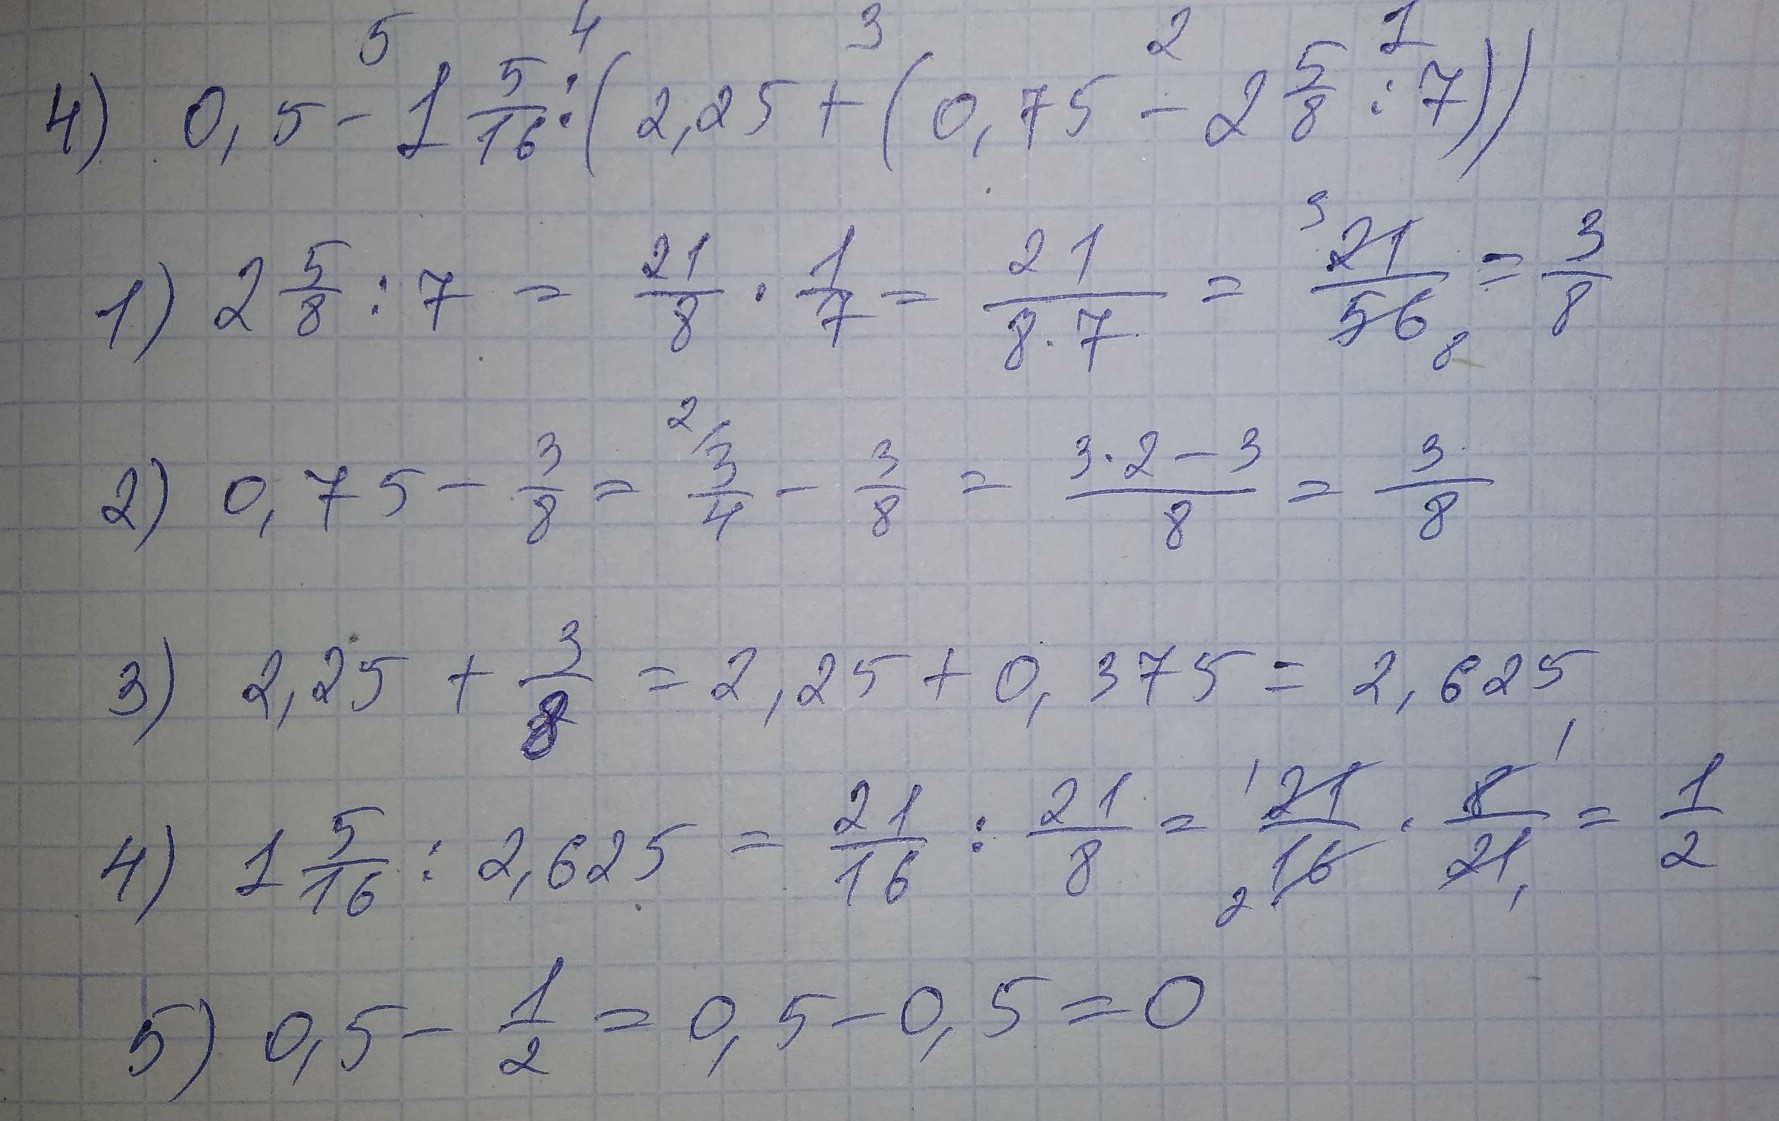 5 4 3 2 1
4) 0,5 - 1 5/16 : (2,25 + (0,75 - 2 5/8 : 7))
1) 2 5/8 : 7 = 21/8 · 1/7 = 21/(8·7) = ³21/56₈ = 3/8
2) 0,75 - 3/8 = ²⁄3/4 - 3/8 = (3·2-3)/8 = 3/8
3) 2,25 + 3/8 = 2,25 + 0,375 = 2,625
4) 1 5/16 : 2,625 = 21/16 : 21/8 = ¹21/₂16 · 8¹/21₁ = 1/2
5) 0,5 - 1/2 = 0,5 - 0,5 = 0